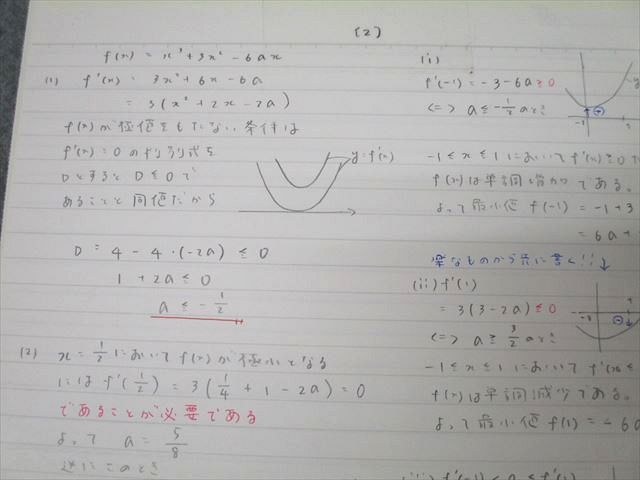 f(x) = x³+3x²-6ax
(1) f'(x) = 3x²+6x-6a
= 3(x²+2x-2a)
f(x)が極値をもたない条件は
f'(x)=0の判別式を
DとするとD≦0で
あることと同値だから
y=f'(x)
D = 4-4・(-2a) ≦ 0
1+2a≦0
a ≦ -1/2
(2) x=1/2において f(x)が極小となる
には f'(1/2) = 3(1/4+1-2a)=0
であることが必要である
よって a = 5/8
逆にこのとき
(2)
(i)
f'(-1) = -3-6a≧0
<=> a≦-1/2 のとき
-1
-1≦x≦1において f'(x)≧0
f(x)は単調増加である。
よって最小値 f(-1) = -1+3
= 6a+
楽なものから先に書く!!↓
(ii) f'(1)
= 3(3-2a)≦0
<=> a≧3/2 のとき
-1≦x≦1において f'(x)≦
f(x)は単調減少である。
よって最小値 f(1) = -6a